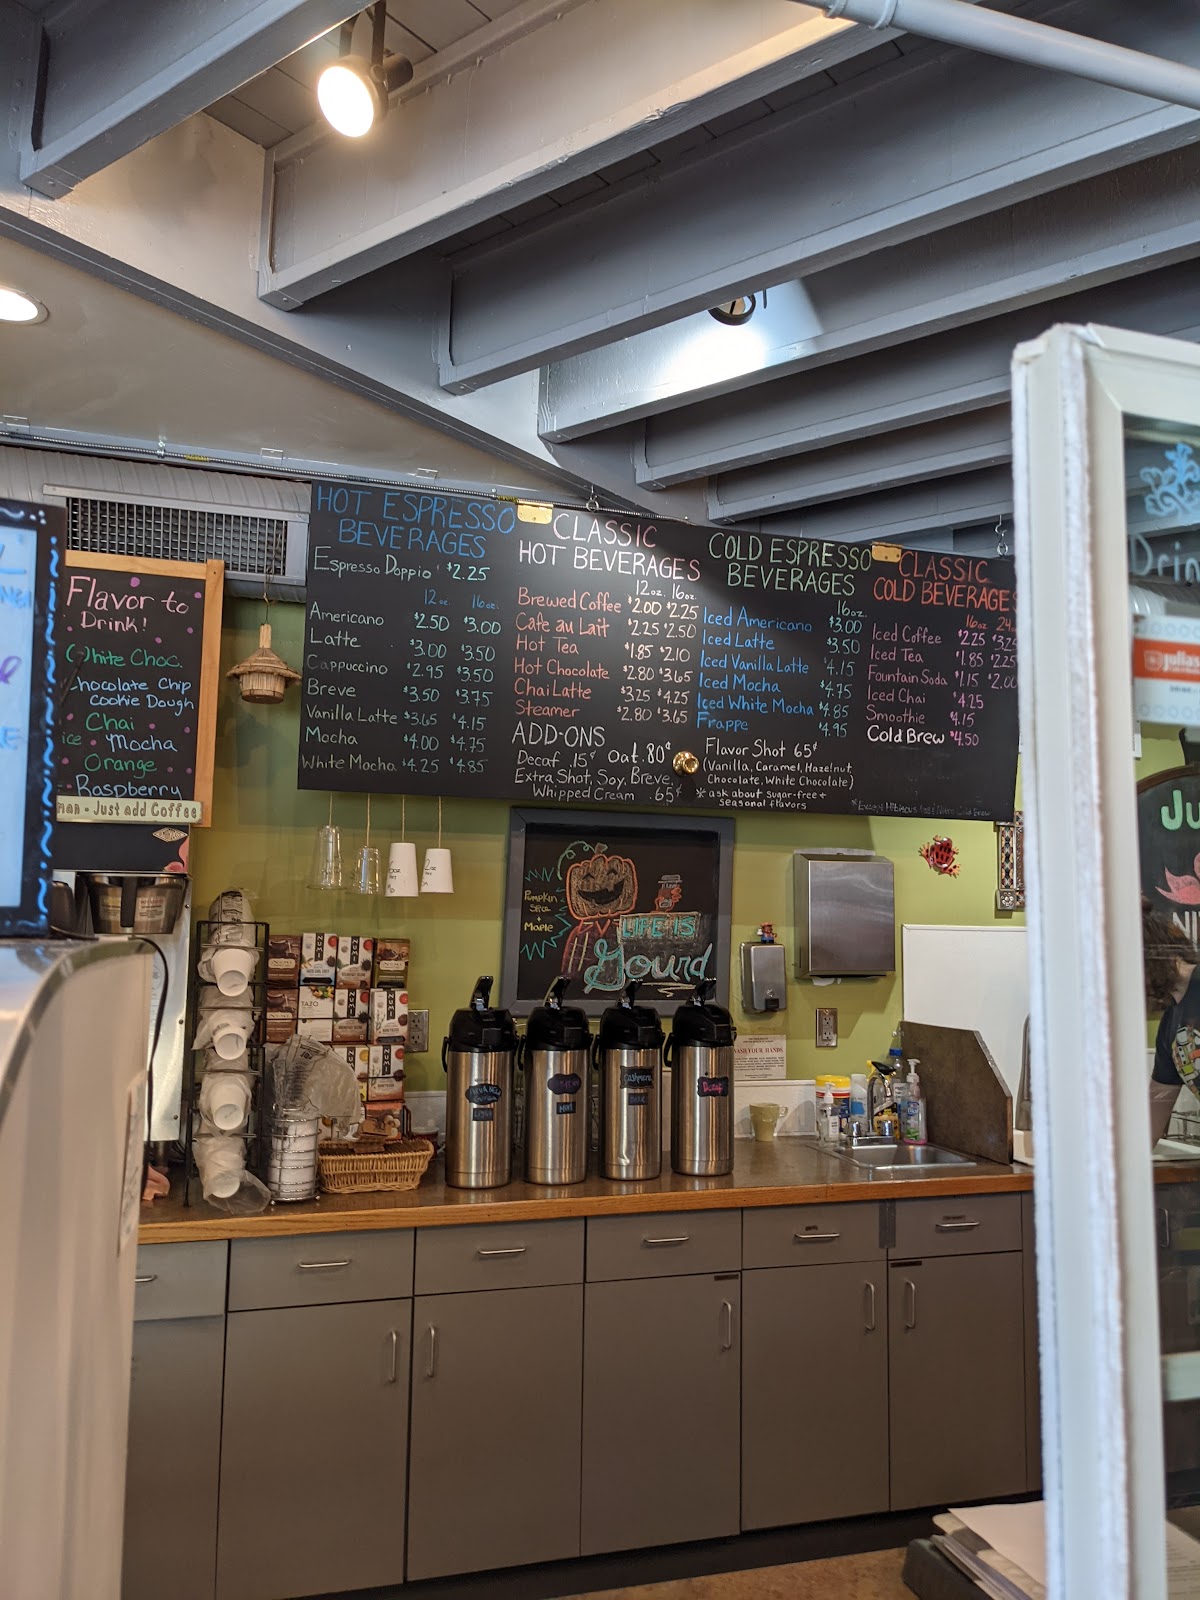 Flavor to
Drink!
White Choc.
Chocolate Chip
cookie Dough
Chai
Mocha
Orange
Raspberry
man - Just add Coffee
HOT ESPRESSO
BEVERAGES
Espresso Doppio $2.25
12 oz. 16 oz.
Americano $2.50 $3.00
Latte $3.00 $3.50
Cappuccino $2.95 $3.50
Breve $3.50 $3.75
Vanilla Latte $3.65 $4.15
Mocha $4.00 $4.75
White Mocha $4.25 $4.85
CLASSIC
HOT BEVERAGES
12oz. 16oz.
Brewed Coffee $2.00 $2.25
Cafe au Lait $2.25 $2.50
Hot Tea $1.85 $2.10
Hot Chocolate $2.80 $3.65
Chai Latte $3.25 $4.25
Steamer $2.80 $3.65
ADD-ONS
Decaf .15¢ Oat .80¢
Extra Shot, Soy, Breve,
Whipped Cream .65¢
COLD ESPRESSO
BEVERAGES
16oz.
Iced Americano $3.00
Iced Latte $3.50
Iced Vanilla Latte $4.15
Iced Mocha $4.75
Iced White Mocha $4.85
Frappe $4.95
Flavor Shot 65¢
(Vanilla, Caramel, Hazelnut,
Chocolate, White Chocolate)
* ask about sugar-free +
seasonal flavors
CLASSIC
COLD BEVERAGES
16oz 24
Iced Coffee $2.25 $3.25
Iced Tea $1.85 $2.25
Fountain Soda $1.15 $2.00
Iced Chai $4.25
Smoothie $4.15
Cold Brew $4.50
Pumpkin
Spice
+
Maple
LIFE IS
Gourd
NUMI
TAZO
Decaf
WASH YOUR HANDS
Drin
julia
Ju
NI